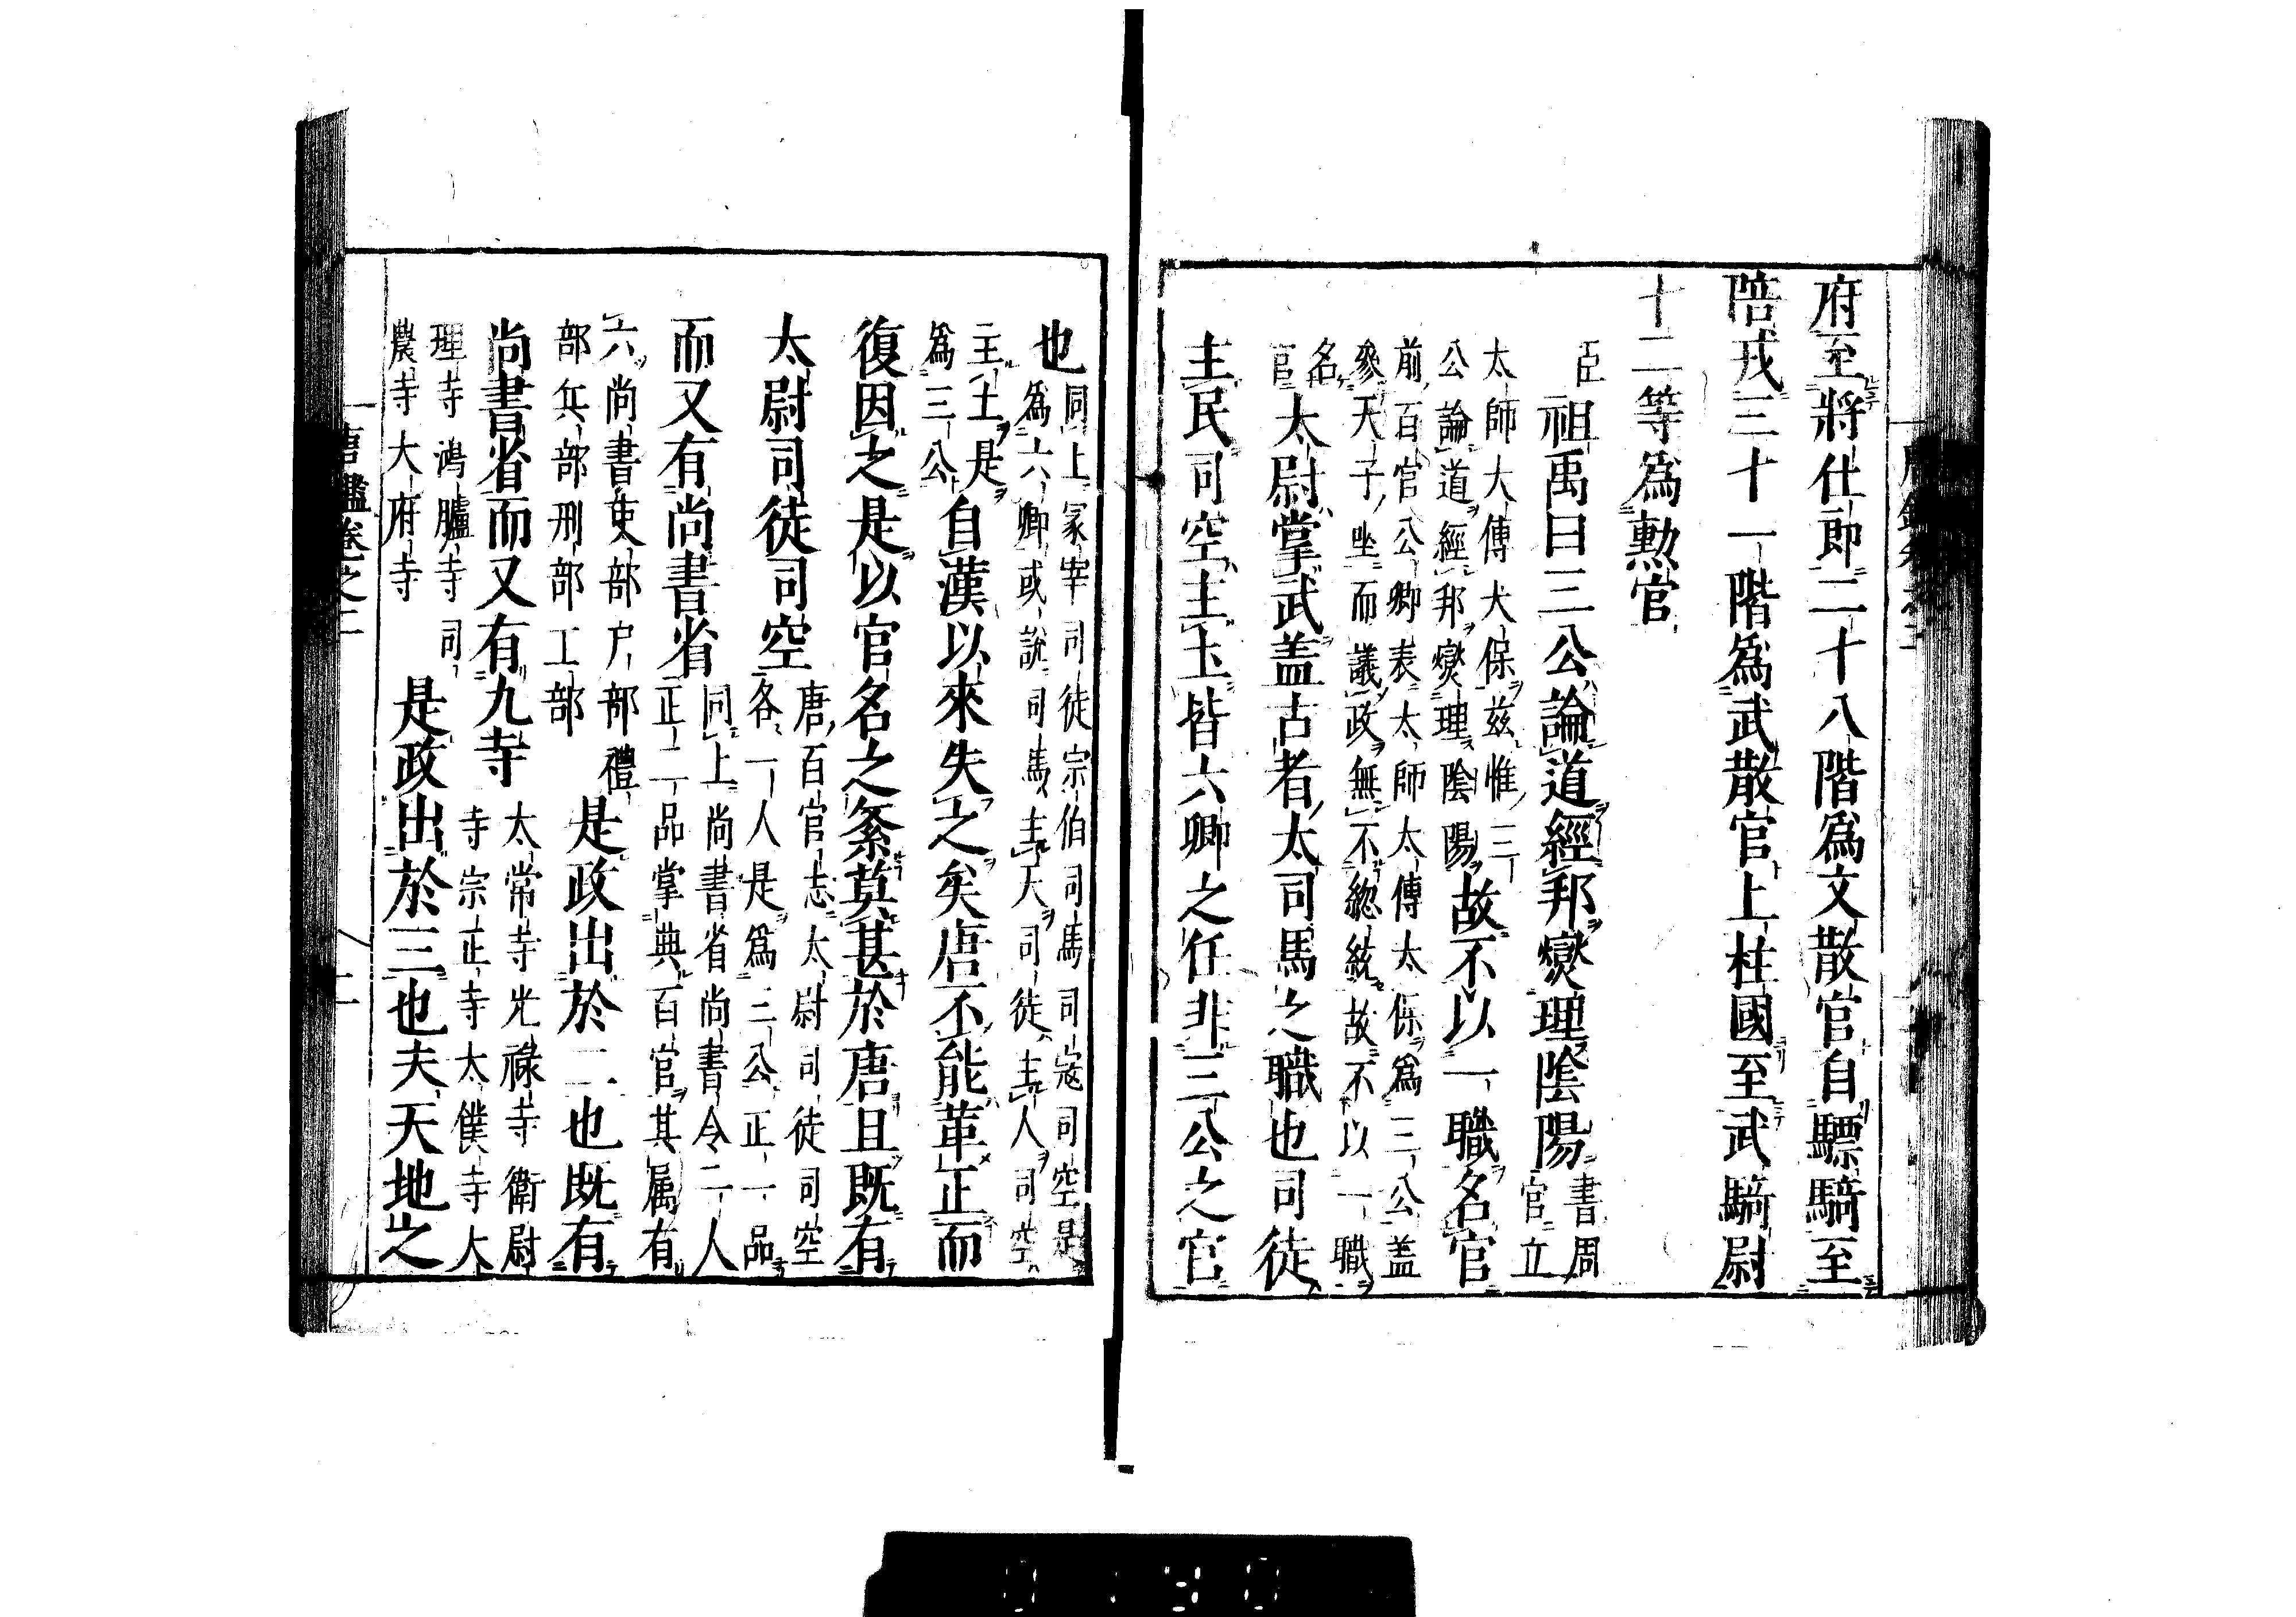 府至將仕郎二十八階爲文散官自驃騎至
陪戎三十一階爲武散官上柱國至武騎尉
十二等爲勲官
臣祖禹曰三公論道經邦燮理陰陽書周官立
太師大傅大保兹惟三公論道經邦燮理陰陽故不以一職名官
前百官公卿表太師太傅太保爲三公盖參天子坐而議政無不緫統故不以一職名
官太尉掌武盖古者太司馬之職也司徒
主民司空主土皆六卿之任非三公之官
也同上冢宰司徒宗伯司馬司寇司空是爲六卿或説司馬主天司徒主人司空
主土是爲三公自漢以來失之矣唐不能革正而
復因之是以官名之紊莫甚於唐且既有
太尉司徒司空唐百官志太尉司徒司空各一人是爲三公正一品
而又有尚書省同上尚書省尚書令二人正二品掌典百官其属有
六尚書吏部户部禮部兵部刑部工部是政出於二也既有
尚書省而又有九寺太常寺光禄寺衛尉寺宗正寺太僕寺大
理寺鴻臚寺司農寺大府寺是政出於三也夫天地之
唐鑑卷之二
二